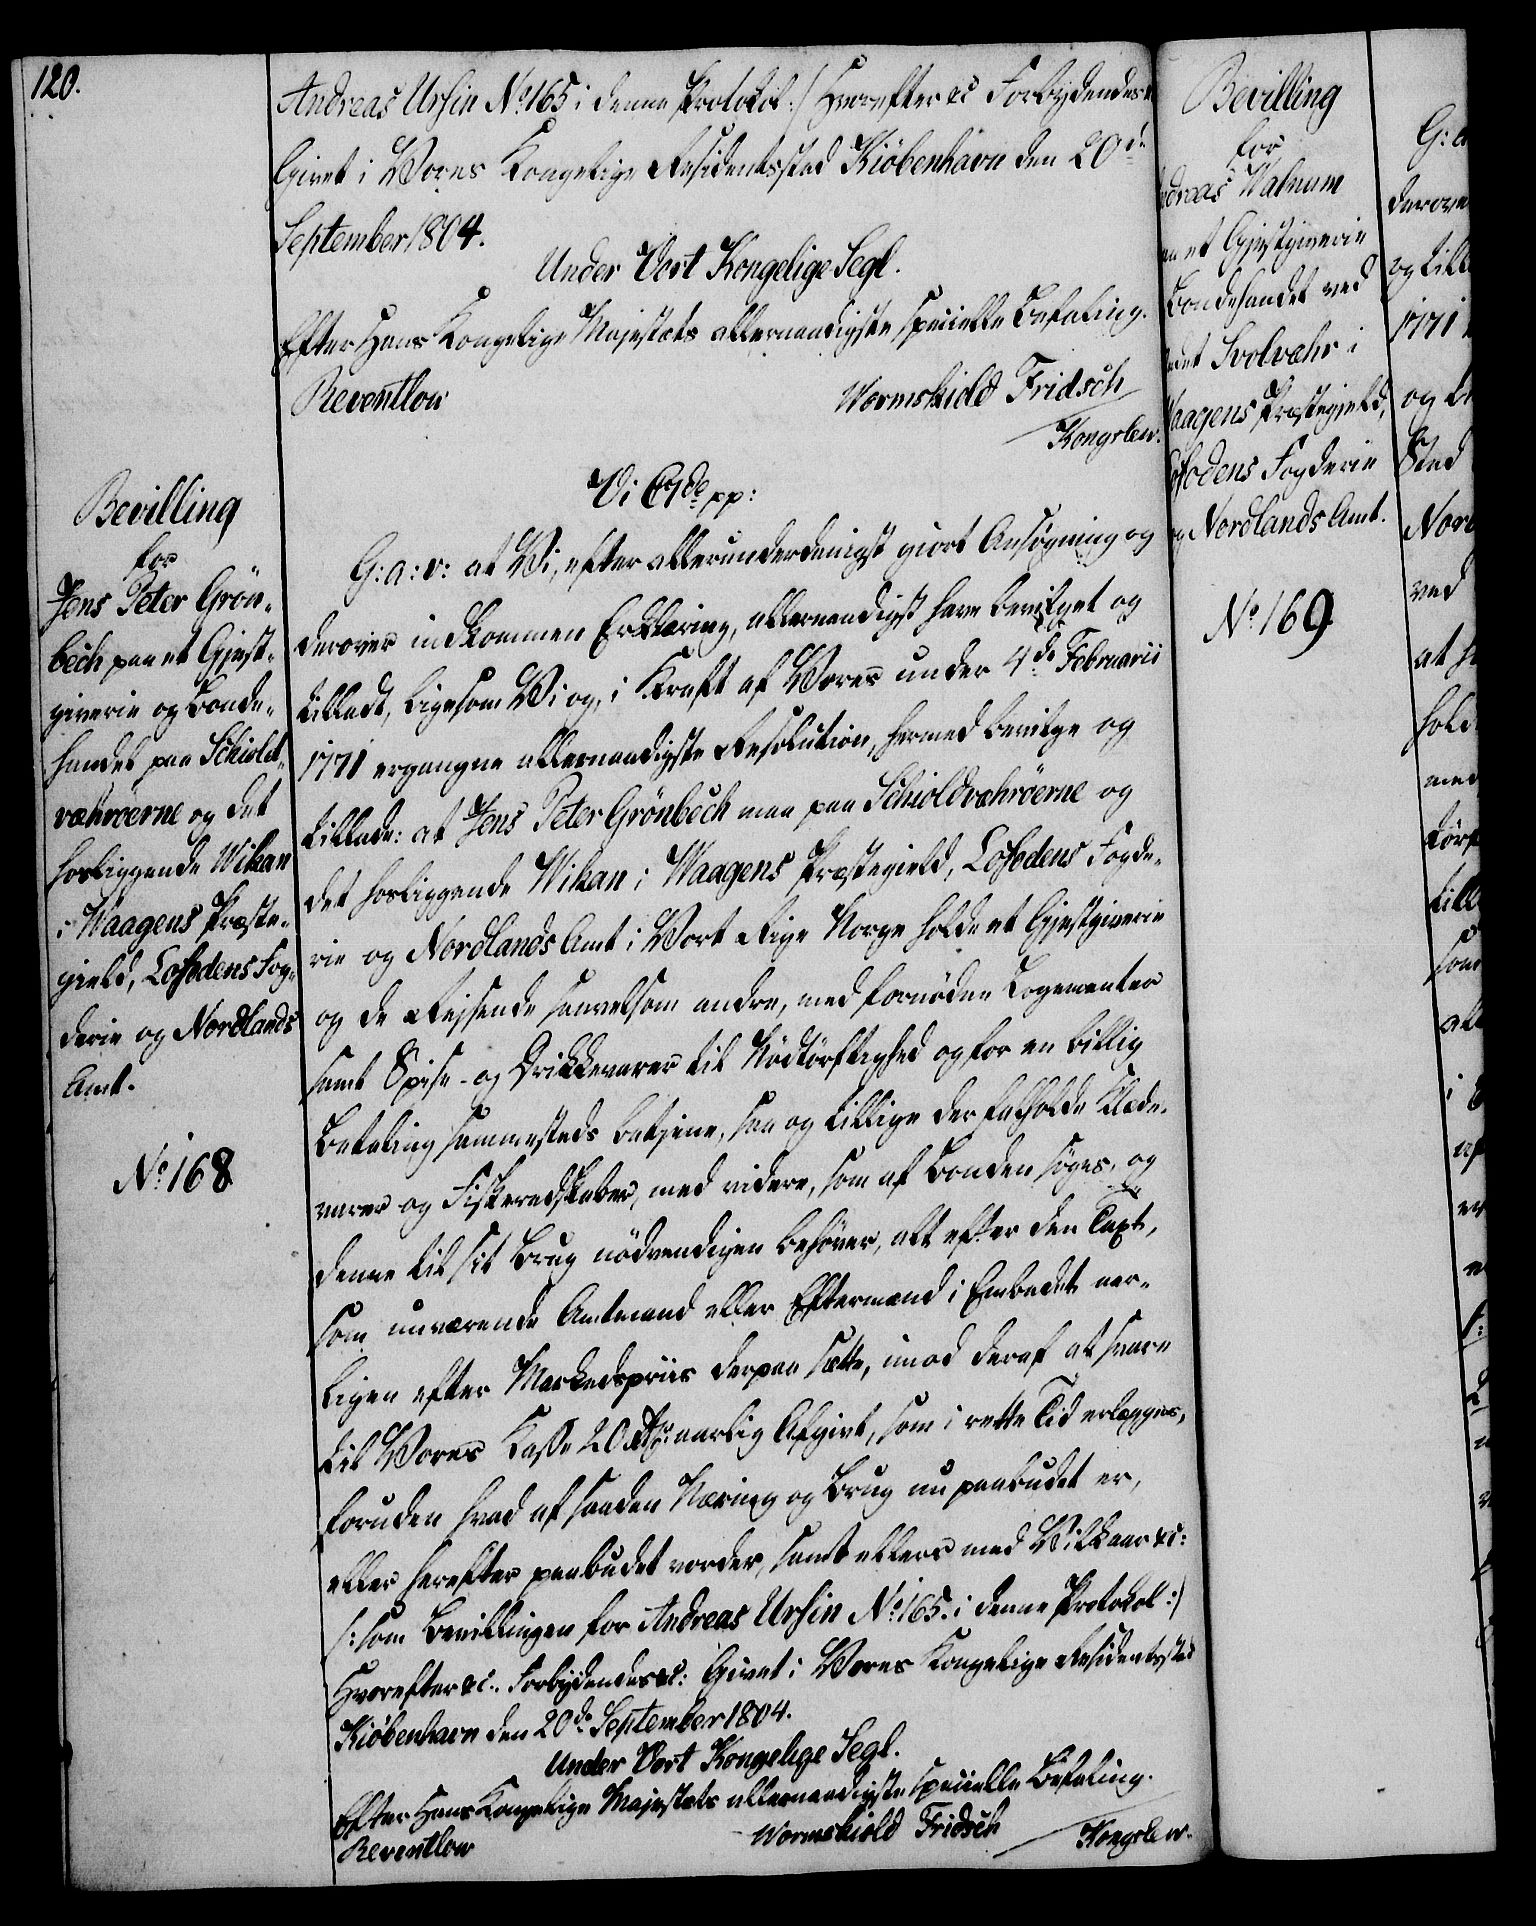 120.
Andreas Ursin No. 165 i denne Protokol :/ Hvorefter &c Forbydendes &c
Givet i Vores Kongelige Residentsstad Kiöbenhavn den 20de
September 1804.
Under Vort Kongelige Segl.
Efter Hans Kongelige Majestæts allernaadigste specielle Befaling.
Reventlow
Wormskiold Fridsch
Kongslew.
Bevilling
for
Jens Peter Grön-
bech paa et Gjest-
giverie og Bonde-
handel paa Schiold-
væhröerne og det
hosliggende Wikan
i Waagens Præste-
gield, Lofodens Fog-
derie og Nordlands
Amt.
No. 168
Vi C7de pp:
G: a: v: at Vi, efter allerunderdanigst giort Ansøgning og
derover indkommen Erklæring, allernaadigst have bevilget og
tilladt, ligesom Vi og, i Kraft af Vores under 4de Februarii
1771 ergangne allernaadigste Resolution, hermed bevilge og
tillade: at Jens Peter Grönbech maa paa Schioldvæhröerne og
det hosliggende Wikan i Waagens Præstegield, Lofodens Fogde-
rie og Nordlands Amt i Vort Rige Norge holde et Gjestgiverie
og de Rejsende saavelsom andre, med fornödne Logementer
samt Spise- og Drikkevarer til Nödtörftighed og for en billig
Betaling sammesteds betjene, saa og tillige der falholde Klæde-
varer og Fiskeredskaber, med videre, som af Bonden söges, og
denne til sit Brug nödvendigen behöver, alt efter den Taxt,
som nuværende Amtmand eller Eftermænd i Embedet aar-
ligen efter Markedspriis derpaa sætte, imod deraf at svare
til Vores Kasse 20 Rdr. aarlig Afgivt, som i rette Tid erlægges,
foruden hvad af saadan Næring og Brug nu paabudet er,
eller herefter paabudet vorder, samt ellers med Vilkaar &c:
/: som Bevillingen for Andreas Ursin No. 165. i denne Protokol :/
Hvorefter &c. Forbydendes &c: Givet i Vores Kongelige Residentsstad
Kiöbenhavn den 20de September 1804.
Under Vort Kongelige Segl.
Efter Hans Kongelige Majestæts allernaadigste specielle Befaling.
Reventlow
Wormskiold Fridsch
Kongslew.
Bevilling
for
Andreas Walnum
paa et Gjestgiverie
Bondehandel ved
Svolvæhr i
Waagens Præstegield,
Lofodens Fogderie
og Nordlands Amt.
No. 169
G: a
derove
og till
1771
og
Sted
Nord
ved
at
hold
med
törf
till
som